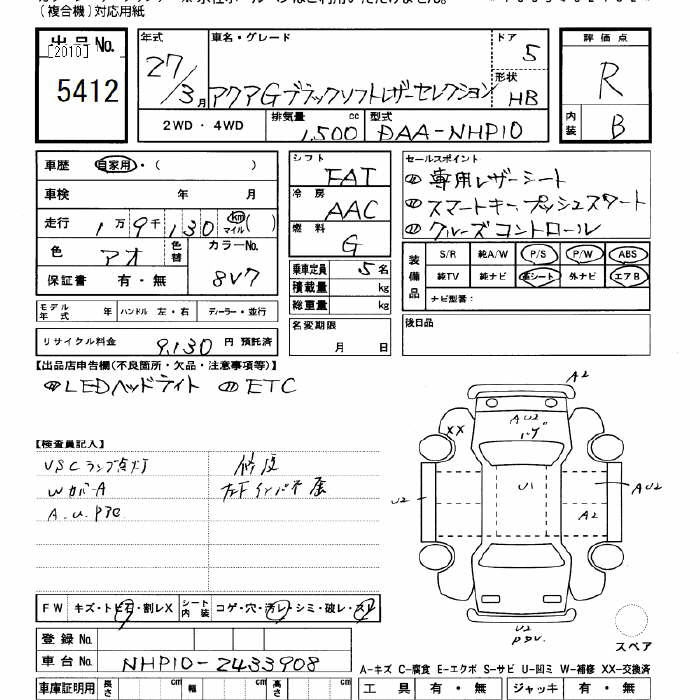 (複合機)対応用紙
出品No.
[2010]
5412
年式
27/3月
車名・グレード
アクアGブラックソフトレザーセレクション
ドア
5
形状
HB
2WD・4WD
排気量
1,500 cc
型式
DAA-NHP10
評価点
R
内装
B
車歴 自家用・( )
車検 年 月
走行 1万9千130 km マイル( )
色 アオ 色替 カラーNo. 8V7
保証書 有・無
モデル年式 年 ハンドル 左・右 ディーラー・並行
リサイクル料金 9,130 円 預託済
シフト FAT
冷房 AAC
燃料 G
乗車定員 5名
積載量 kg
総重量 kg
名変期限
月 日
セールスポイント
専用レザーシート
スマートキー、プッシュスタート
クルーズコントロール
装備品
S/R 純A/W P/S P/W ABS
純TV 純ナビ 革シート 外ナビ エアB
ナビ型番:
後日品
【出品店申告欄(不良箇所・欠品・注意事項等)】
LEDヘッドライト ETC
【検査員記入】
VSCランプ点灯
WカバーA
修復
A2
AU2
XX
U2
U1
AU2
A2
U2
スペア
FW キズ・トビ石・割レX シート内装 コゲ・穴・汚レ・シミ・破レ・スレ
登録No.
車台No. NHP10-2433908
A-キズ C-腐食 E-エクボ S-サビ U-凹ミ W-補修 XX-交換済
車庫証明用 長さ cm 幅 cm 高さ cm
工具 有・無 ジャッキ 有・無